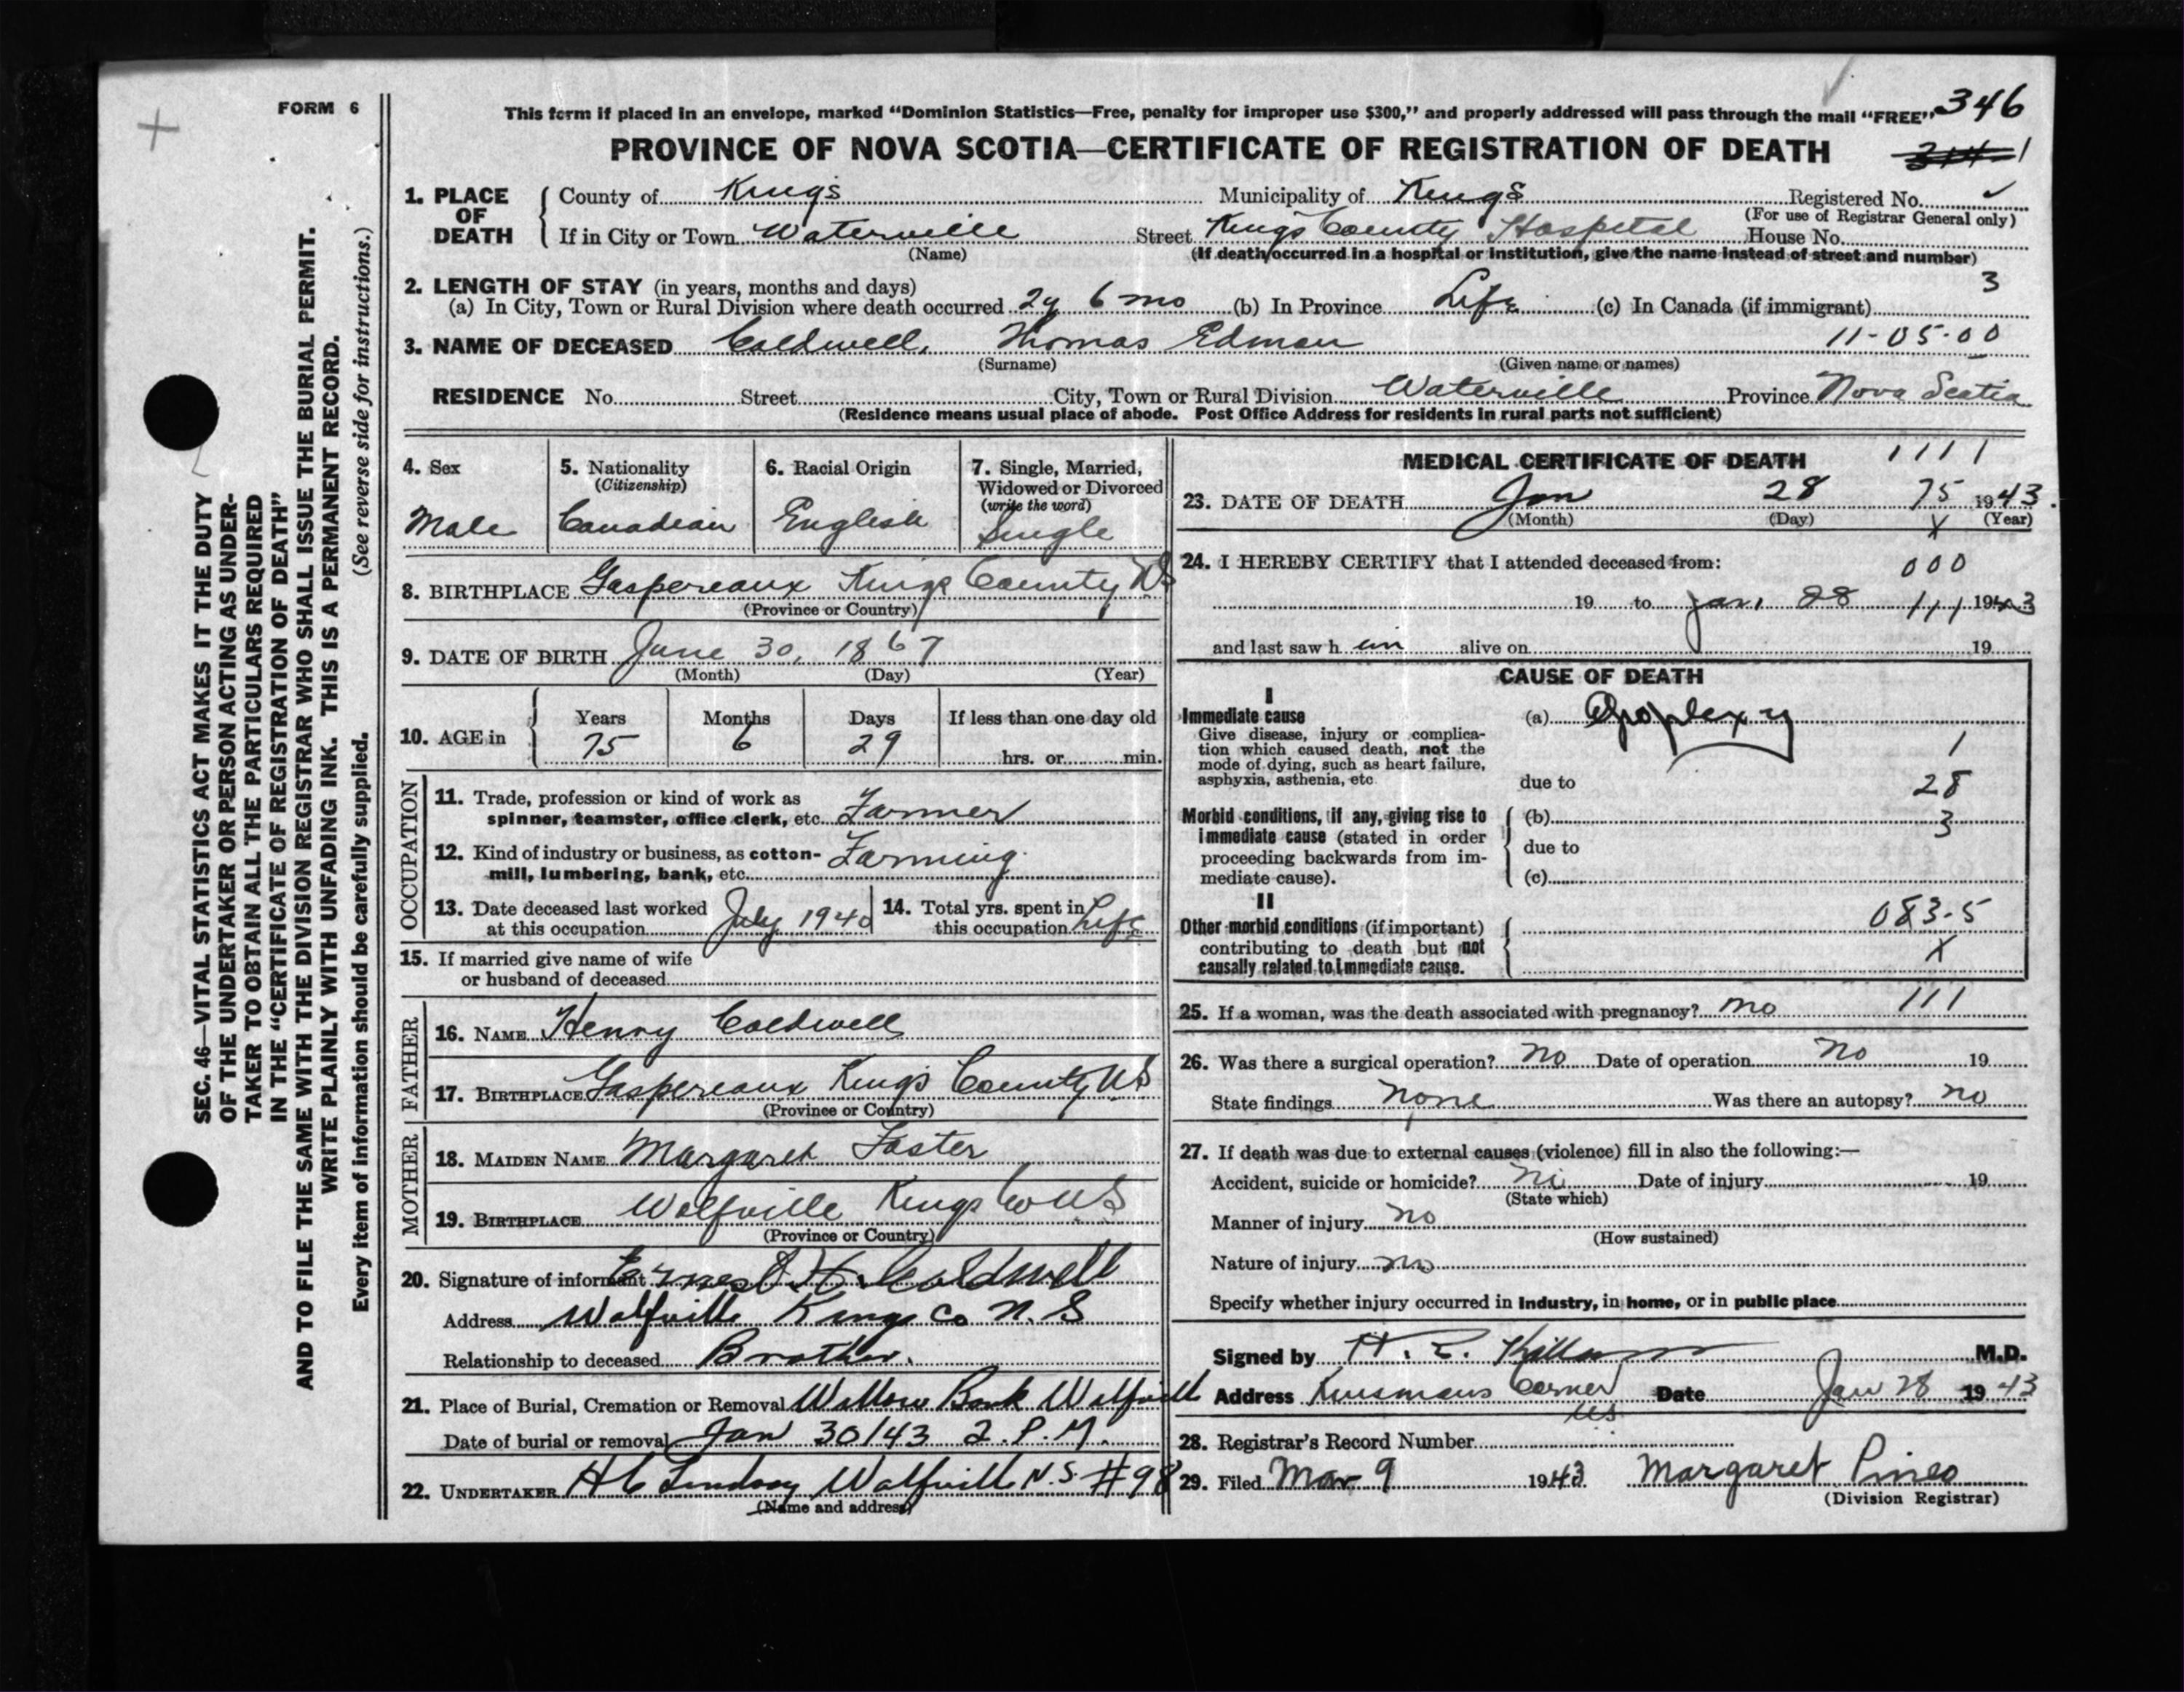 FORM 6
This form if placed in an envelope, marked "Dominion Statistics—Free, penalty for improper use $300," and properly addressed will pass through the mail "FREE" 346
PROVINCE OF NOVA SCOTIA—CERTIFICATE OF REGISTRATION OF DEATH
1. PLACE OF DEATH County of Kings Municipality of Kings Registered No. ✓
(For use of Registrar General only)
If in City or Town Waterville Street Kings County Hospital House No.
(Name) (If death occurred in a hospital or institution, give the name instead of street and number)
2. LENGTH OF STAY (in years, months and days) 3
(a) In City, Town or Rural Division where death occurred 2y 6 mo (b) In Province Life (c) In Canada (if immigrant)
3. NAME OF DECEASED Coldwell, Thomas Edman 11-05-00
(Surname) (Given name or names)
RESIDENCE No. Street City, Town or Rural Division Waterville Province Nova Scotia
(Residence means usual place of abode. Post Office Address for residents in rural parts not sufficient)
4. Sex
Male
5. Nationality
(Citizenship)
Canadian
6. Racial Origin
English
7. Single, Married,
Widowed or Divorced
(write the word)
Single
8. BIRTHPLACE Gaspereaux Kings County NS
(Province or Country)
9. DATE OF BIRTH June 30, 1867
(Month) (Day) (Year)
10. AGE in Years Months Days If less than one day old
75 6 29 hrs. or min.
OCCUPATION
11. Trade, profession or kind of work as
spinner, teamster, office clerk, etc. Farmer
12. Kind of industry or business, as cotton-
mill, lumbering, bank, etc. Farming
13. Date deceased last worked
at this occupation July 1940
14. Total yrs. spent in
this occupation Life
15. If married give name of wife
or husband of deceased
FATHER
16. NAME Henry Coldwell
17. BIRTHPLACE Gaspereaux Kings County NS
(Province or Country)
MOTHER
18. MAIDEN NAME Margaret Foster
19. BIRTHPLACE Wolfville Kings Co NS
(Province or Country)
20. Signature of informant Ernest H. Coldwell
Address Wolfville Kings Co N.S
Relationship to deceased Brother.
21. Place of Burial, Cremation or Removal Willow Bank Wolfville
Date of burial or removal Jan 30/43 2. P.M.
22. UNDERTAKER H C Lindsay Wolfville N.S. #98
(Name and address)
MEDICAL CERTIFICATE OF DEATH 1111
23. DATE OF DEATH Jan 28 75 1943.
(Month) (Day) X (Year)
24. I HEREBY CERTIFY that I attended deceased from: 000
19 to Jan. 28 111 1943
and last saw h im alive on 19
CAUSE OF DEATH
I
Immediate cause
Give disease, injury or complica-
tion which caused death, not the
mode of dying, such as heart failure,
asphyxia, asthenia, etc
(a) Apoplexy
1
due to 28
Morbid conditions, if any, giving rise to
immediate cause (stated in order
proceeding backwards from im-
mediate cause).
(b) 3
due to
(c)
II
Other morbid conditions (if important)
contributing to death but not
causally related to immediate cause.
083-5
X
25. If a woman, was the death associated with pregnancy? no 111
26. Was there a surgical operation? no Date of operation no 19
State findings none Was there an autopsy? no
27. If death was due to external causes (violence) fill in also the following:—
Accident, suicide or homicide? Date of injury 19
(State which)
Manner of injury no
(How sustained)
Nature of injury no
Specify whether injury occurred in industry, in home, or in public place
Signed by H. E. Killam M.D.
Address Kinsmans Corner NS Date Jan 28 1943
28. Registrar's Record Number
29. Filed Mar 9 1943 Margaret Pineo
(Division Registrar)
SEC. 46—VITAL STATISTICS ACT MAKES IT THE DUTY
OF THE UNDERTAKER OR PERSON ACTING AS UNDER-
TAKER TO OBTAIN ALL THE PARTICULARS REQUIRED
IN THE "CERTIFICATE OF REGISTRATION OF DEATH"
AND TO FILE THE SAME WITH THE DIVISION REGISTRAR WHO SHALL ISSUE THE BURIAL PERMIT.
WRITE PLAINLY WITH UNFADING INK. THIS IS A PERMANENT RECORD.
Every item of information should be carefully supplied. (See reverse side for instructions.)